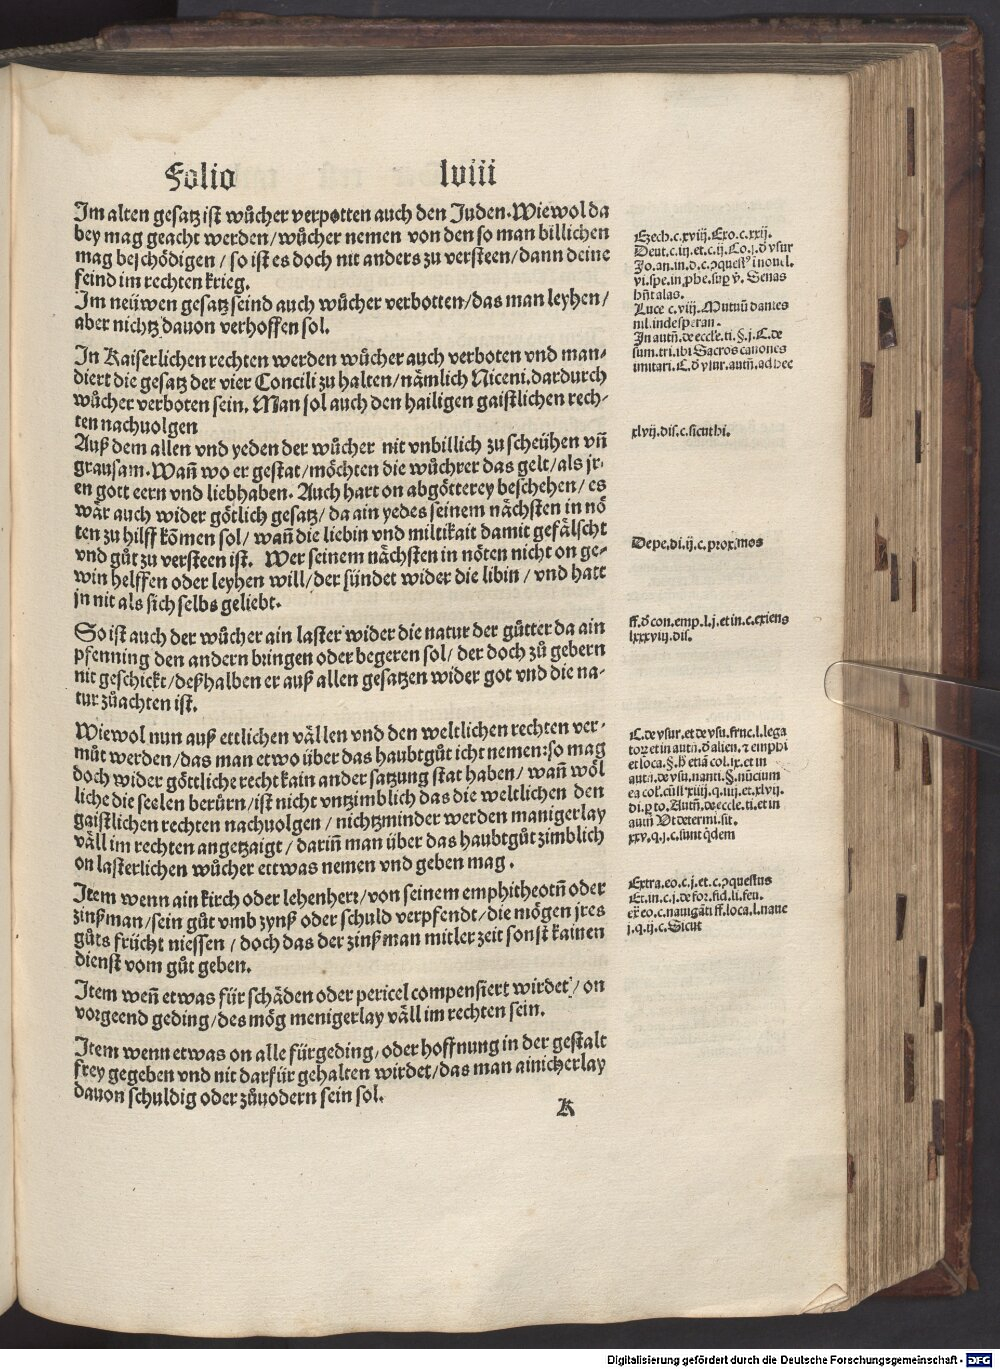 Folio lviii
Im alten gesatz ist wůcher verpotten auch den Juden. Wiewol da
bey mag geacht werden/wůcher nemen von den so man billichen
mag beschödigen/so ist es doch nit anders zu versteen/dann deine
feind im rechten krieg.
Im neüwen gesatz seind auch wůcher verbotten/das man leyhen/
aber nichtz dauon verhoffen sol.
In Kaiserlichen rechten werden wůcher auch verboten vnd man⸗
diert die gesatz der vier Concili zu halten/nämlich Niceni.dardurch
wůcher verboten sein. Man sol auch den hailigen gaistlichen rech⸗
ten nachuolgen
Auß dem allen vnd yeden der wůcher nit vnbillich zu scheühen vñ
grausam. Wañ wo er gestat/möchten die wůchrer das gelt/als jr⸗
en gott eern vnd liebhaben. Auch hart on abgötterey beschehen/es
wär auch wider götlich gesatz/da ain yedes seinem nächsten in nö
ten zu hilff kömen sol/wañ die liebin vnd miltikait damit gefälscht
vnd gůt zu versteen ist. Wer seinem nächsten in nöten nicht on ge⸗
win helffen oder leyhen will/der sündet wider die libin/vnd hatt
jn nit als sich selbs geliebt.
So ist auch der wůcher ain laster wider die natur der gütter da ain
pfenning den andern bringen oder begeren sol/der doch zů gebern
nit geschickt/deßhalben er auß allen gesatzen wider got vnd die na⸗
tur zůachten ist.
Wiewol nun auß ettlichen vällen vnd den weltlichen rechten ver⸗
můt werden/das man etwo über das haubtgůt icht nemen:so mag
doch wider göttliche recht kain ander satzung stat haben/wañ wöl
liche die seelen berürn/ist nicht vntzimblich das die weltlichen den
gaistlichen rechten nachuolgen/nichtzminder werden manigerlay
väll im rechten angetzaigt/dariñ man über das haubtgůt zimblich
on lasterlichen wůcher ettwas nemen vnd geben mag.
Item wenn ain kirch oder lehenherr/von seinem emphitheotñ oder
zinßman/sein gůt vmb zynß oder schuld verpfendt/die mögen jres
gůts frücht niessen/doch das der zinßman mitler zeit sonst kainen
dienst vom gůt geben.
Item weñ etwas für schäden oder pericel compensiert wirdet/on
vorgeend geding/des mög menigerlay väll im rechten sein.
Item wenn etwas on alle fürgeding/oder hoffnung in der gestalt
frey gegeben vnd nit darfür gehalten wirdet/das man ainicherlay
dauon schuldig oder zůuodern sein sol.
K
Ezech.c.xviij.Exo.c.xxij.
Deut.c.
Luce c.viij.Mutuũ dantes
nil.inde speran.
In autñ.de eccle.ti.§.j.C.de
sum.tri.ibi Sacros canones
xlvij.dis.c.sicut hi.
De pe.di.ij.c.proximos
ff.đ con.emp.l.j.et in c.exiens
lxxxviij.dis.
C.de vsur.et de vsu.fruc.l.lega
xxv.q.j.c.sunt q̃dem
Extra.eo.c.j.et.c.ɔquestus
Et.in.c.j.de for.fid.li.feu.
j.q.ij.c.Sicut
Digitalisierung gefördert durch die Deutsche Forschungsgemeinschaft - DFG